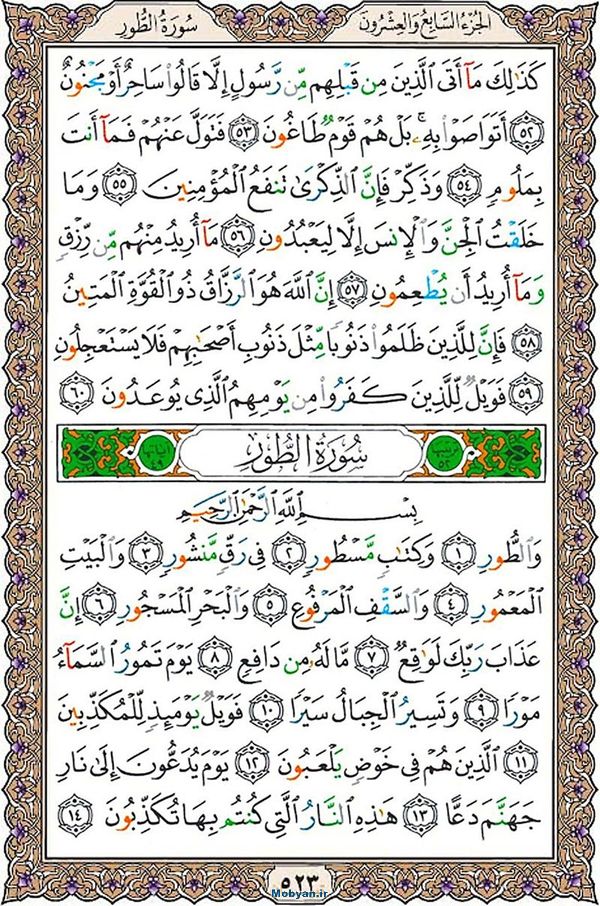 سُورَةُ الطُّورِ
الجُزءُ السَّابِعُ وَالعِشرُونَ
كَذَٰلِكَ مَآ أَتَى ٱلَّذِينَ مِن قَبۡلِهِم مِّن رَّسُولٍ إِلَّا قَالُواْ سَاحِرٌ أَوۡ مَجۡنُونٌ
٥٢ أَتَوَاصَوۡاْ بِهِۦۚ بَلۡ هُمۡ قَوۡمٌ طَاغُونَ ٥٣ فَتَوَلَّ عَنۡهُمۡ فَمَآ أَنتَ
بِمَلُومٍ ٥٤ وَذَكِّرۡ فَإِنَّ ٱلذِّكۡرَىٰ تَنفَعُ ٱلۡمُؤۡمِنِينَ ٥٥ وَمَا
خَلَقۡتُ ٱلۡجِنَّ وَٱلۡإِنسَ إِلَّا لِيَعۡبُدُونِ ٥٦ مَآ أُرِيدُ مِنۡهُم مِّن رِّزۡقٍ
وَمَآ أُرِيدُ أَن يُطۡعِمُونِ ٥٧ إِنَّ ٱللَّهَ هُوَ ٱلرَّزَّاقُ ذُو ٱلۡقُوَّةِ ٱلۡمَتِينُ
٥٨ فَإِنَّ لِلَّذِينَ ظَلَمُواْ ذَنُوبًا مِّثۡلَ ذَنُوبِ أَصۡحَٰبِهِمۡ فَلَا يَسۡتَعۡجِلُونِ
٥٩ فَوَيۡلٌ لِّلَّذِينَ كَفَرُواْ مِن يَوۡمِهِمُ ٱلَّذِي يُوعَدُونَ ٦٠
ترتيبها ٥٢ سُورَةُ الطُّورِ آياتها ٤٩
بِسۡمِ ٱللَّهِ ٱلرَّحۡمَٰنِ ٱلرَّحِيمِ
وَٱلطُّورِ ١ وَكِتَٰبٍ مَّسۡطُورٍ ٢ فِي رَقٍّ مَّنشُورٍ ٣ وَٱلۡبَيۡتِ
ٱلۡمَعۡمُورِ ٤ وَٱلسَّقۡفِ ٱلۡمَرۡفُوعِ ٥ وَٱلۡبَحۡرِ ٱلۡمَسۡجُورِ ٦ إِنَّ
عَذَابَ رَبِّكَ لَوَٰقِعٌ ٧ مَّا لَهُۥ مِن دَافِعٍ ٨ يَوۡمَ تَمُورُ ٱلسَّمَآءُ
مَوۡرًا ٩ وَتَسِيرُ ٱلۡجِبَالُ سَيۡرًا ١٠ فَوَيۡلٌ يَوۡمَئِذٍ لِّلۡمُكَذِّبِينَ
١١ ٱلَّذِينَ هُمۡ فِي خَوۡضٍ يَلۡعَبُونَ ١٢ يَوۡمَ يُدَعُّونَ إِلَىٰ نَارِ
جَهَنَّمَ دَعًّا ١٣ هَٰذِهِ ٱلنَّارُ ٱلَّتِي كُنتُم بِهَا تُكَذِّبُونَ ١٤
٥٢٣
Mobyan.ir